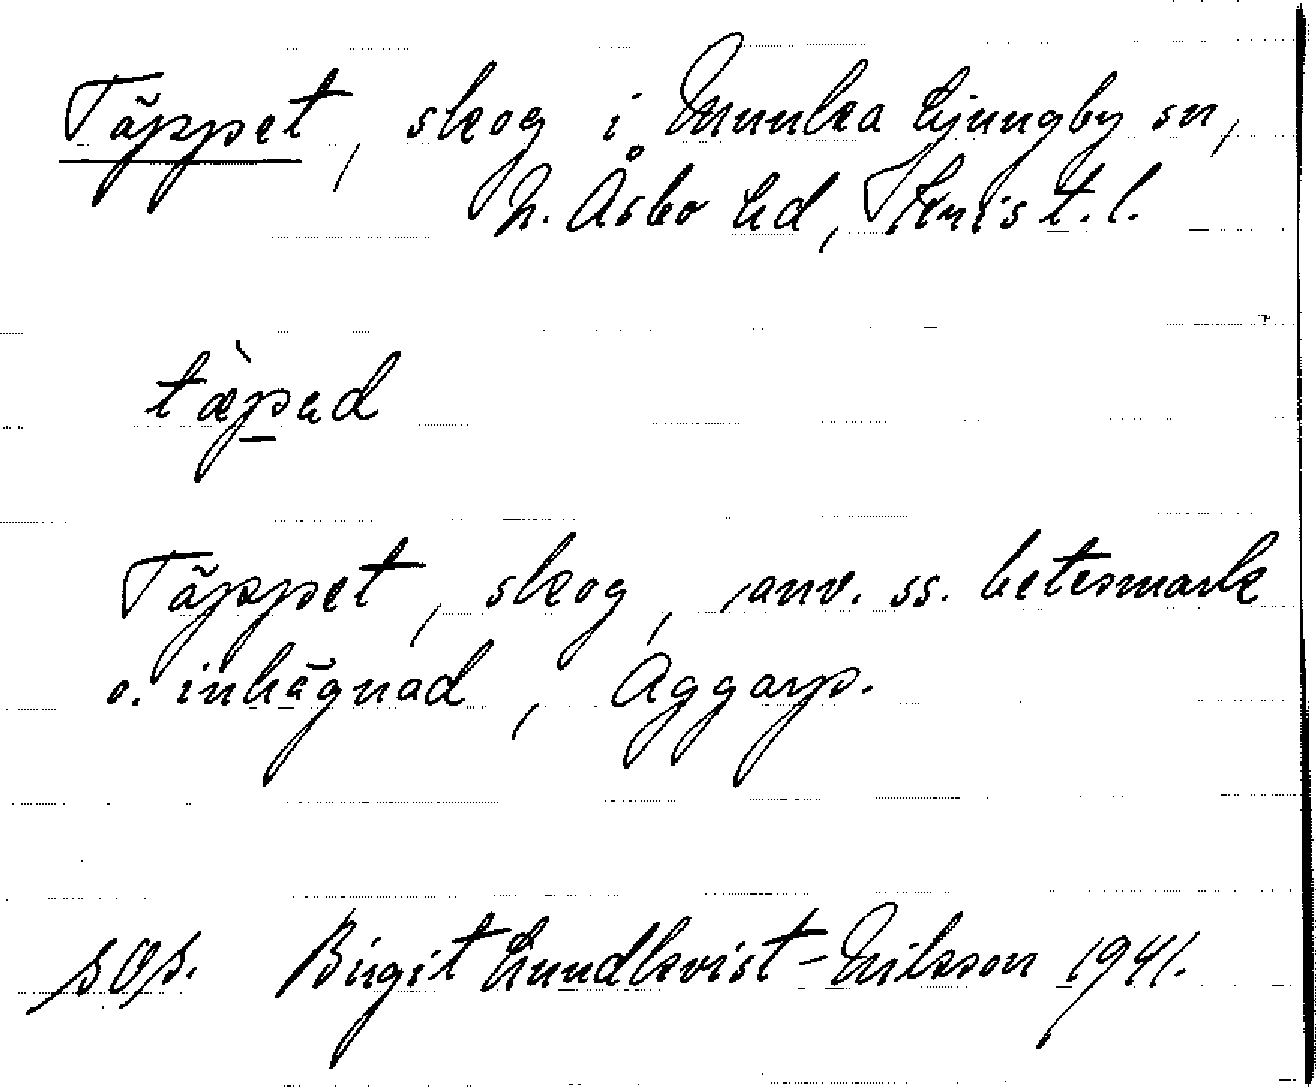 Täppet, skog i Munka Ljungby sn,
N. Åsbo hd, Krist. l.
tæ̀pad
Täppet, skog, anv. ss. betesmark
o. inhägnad, Aggarp.
Birgit Lundkvist-Nilsson 1941.